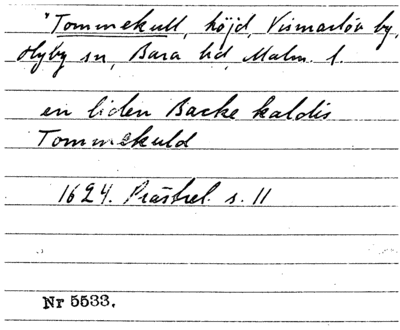 "Tommekull, höjd, Vismarlöv by,
Hyby sn, Bara hd, Malm. l.
en liden Backe kaldis
Tommekuld
1624. Prästrel. s. 11
Nr 5533.